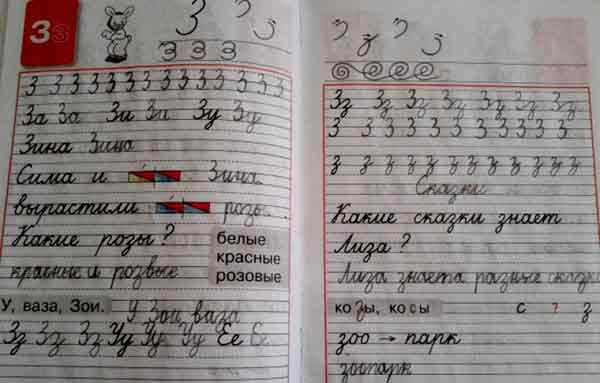 Зз
З
З З З
З З З З З З З З З З З З
За За Зи Зи Зу Зу
Зина Зина
Сима и Зина
вырастили розы.
Какие розы?
белые
красные
розовые
красные и розвые
У, ваза, Зои.
У Зои ваза
Зз Зз Зз Уу Уу Уу Ее Ее
з
Зз Зз Зз Зз Зз Зз Зз
З З З З З З З З З З З
з з з з з з з з з з з з
Сказки
Какие сказки знает
Лиза?
Лиза знаета разные сказки
козы, косы
с ? з
зоо → парк
зоопарк